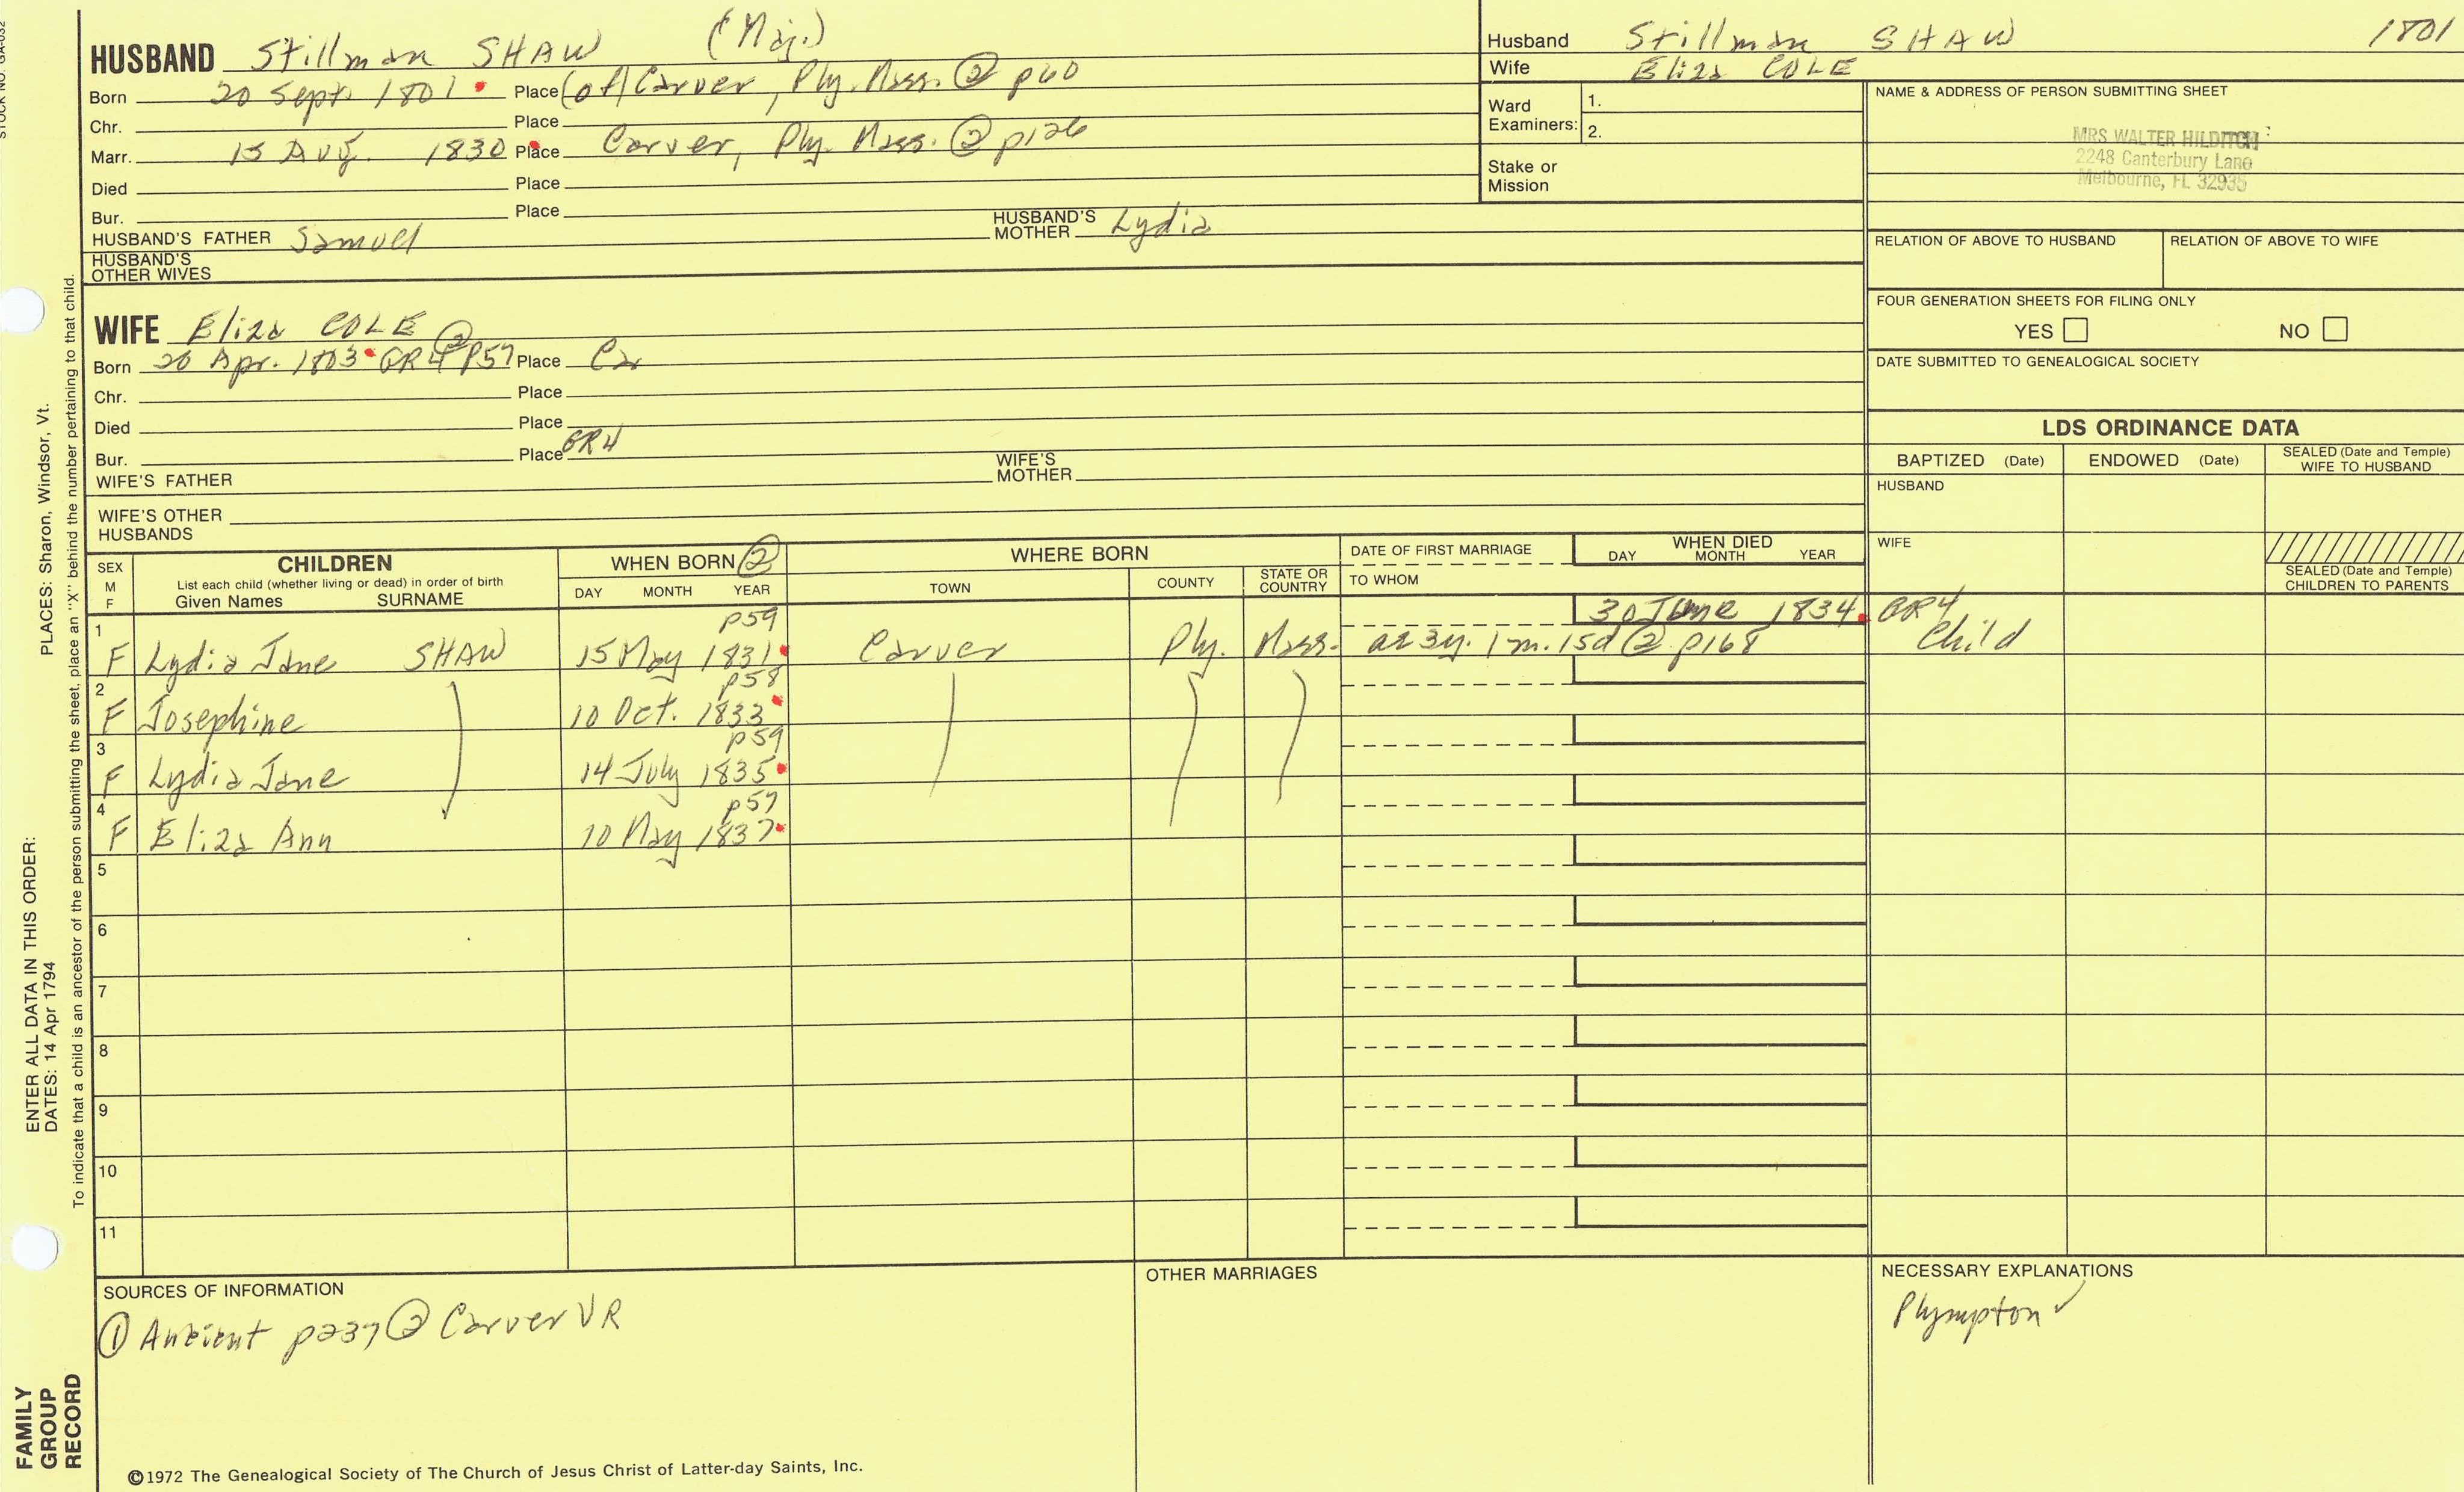 STOCK NO. GA-032
HUSBAND Stillman SHAW (Maj.)
Born 20 Sept. 1801 Place (of) Carver, Ply. Mass. ② p60
Chr. Place
Marr. 15 Aug. 1830 Place Carver, Ply. Mass. ② p126
Died Place
Bur. Place
HUSBAND'S FATHER Samuel HUSBAND'S MOTHER Lydia
HUSBAND'S
OTHER WIVES
Husband Stillman SHAW 1801
Wife Eliza COLE
Ward
Examiners: 1.
2.
Stake or
Mission
NAME & ADDRESS OF PERSON SUBMITTING SHEET
MRS WALTER HILDITCH
2248 Canterbury Lane
Melbourne, FL 32935
RELATION OF ABOVE TO HUSBAND RELATION OF ABOVE TO WIFE
FOUR GENERATION SHEETS FOR FILING ONLY
YES NO
DATE SUBMITTED TO GENEALOGICAL SOCIETY
WIFE Eliza COLE ②
Born 26 Apr. 1803 GR4 p57 Place Ca
Chr. Place
Died Place
Bur. Place GR4
WIFE'S FATHER WIFE'S MOTHER
WIFE'S OTHER
HUSBANDS
LDS ORDINANCE DATA
BAPTIZED (Date) ENDOWED (Date) SEALED (Date and Temple)
WIFE TO HUSBAND
HUSBAND
WIFE
SEALED (Date and Temple)
CHILDREN TO PARENTS
SEX
M
F
CHILDREN
List each child (whether living or dead) in order of birth
Given Names SURNAME
WHEN BORN ②
DAY MONTH YEAR
WHERE BORN
TOWN COUNTY STATE OR
COUNTRY
DATE OF FIRST MARRIAGE
TO WHOM
WHEN DIED
DAY MONTH YEAR
p59 30 June 1834 GR4
1 F Lydia Jane SHAW 15 May 1831 Carver Ply. Mass. ae 3y. 1m. 15d ② p168 Child
p58
2 F Josephine 10 Oct. 1833
p59
3 F Lydia Jane 14 July 1835
p57
4 F Eliza Ann 10 May 1837
5
6
7
8
9
10
11
SOURCES OF INFORMATION
① Ancient p237 ② Carver VR
OTHER MARRIAGES
NECESSARY EXPLANATIONS
Plympton ✓
©1972 The Genealogical Society of The Church of Jesus Christ of Latter-day Saints, Inc.
ENTER ALL DATA IN THIS ORDER:
DATES: 14 Apr 1794
PLACES: Sharon, Windsor, Vt.
To indicate that a child is an ancestor of the person submitting the sheet, place an "X" behind the number pertaining to that child.
FAMILY
GROUP
RECORD